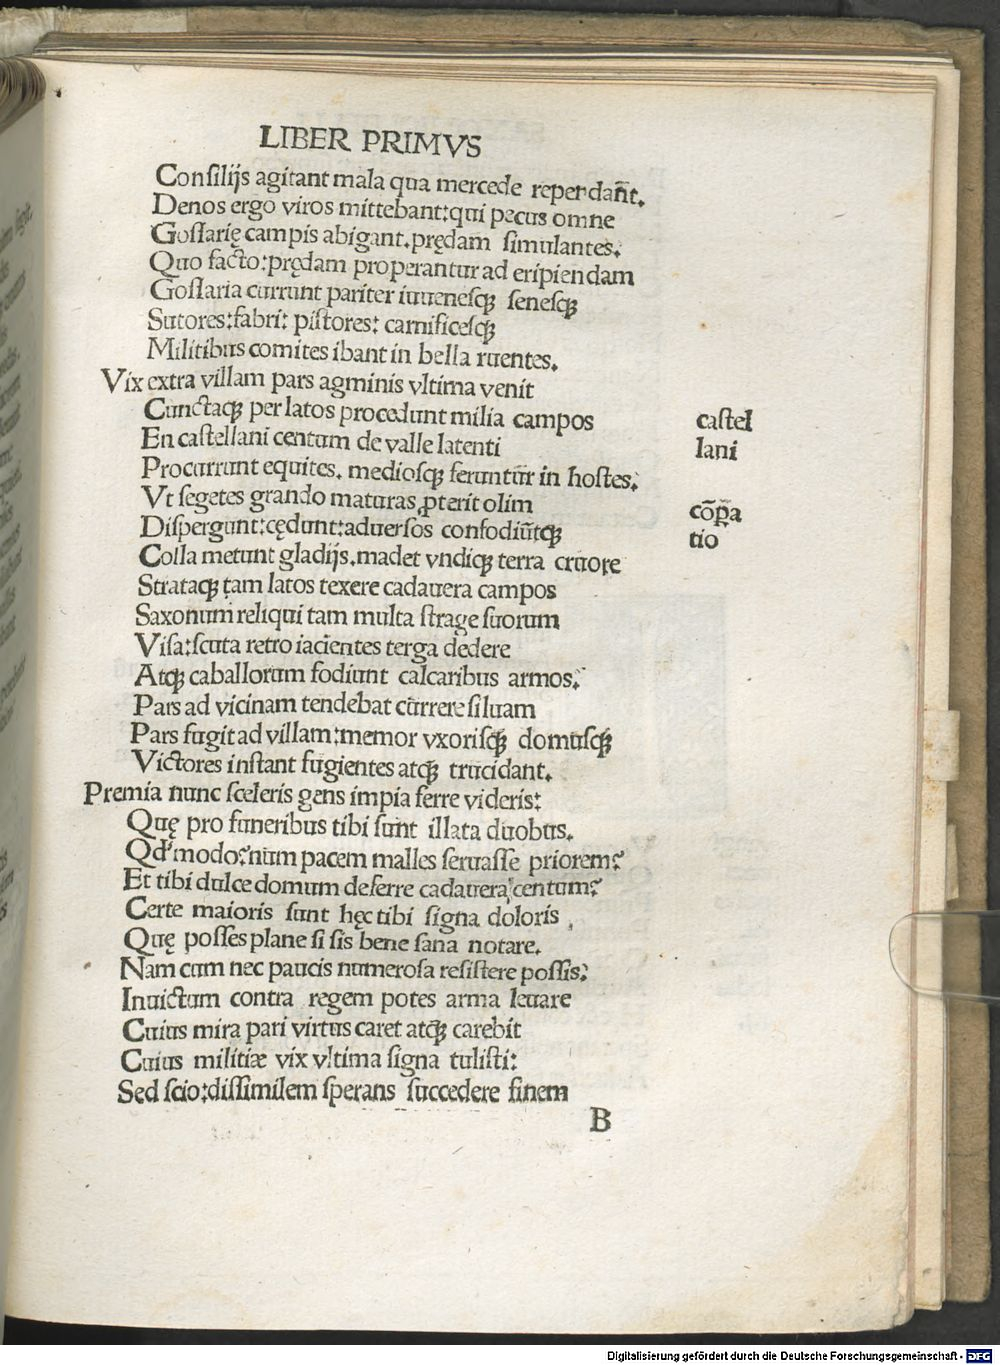 LIBER PRIMVS
Consilijs agitant mala qua mercede rependãt.
Denos ergo viros mittebant:qui pecus omne
Goslarię campis abigant.prędam simulantes.
Quo facto:prędam properantur ad eripiendam
Goslaria currunt pariter iuuenesqꝫ senesqꝫ
Sutores:fabri: pistores: carnificesqꝫ
Militibus comites ibant in bella ruentes.
Vix extra villam pars agminis vltima venit
Cunctaqꝫ per latos procedunt milia campos
En castellani centum de valle latenti
Procurrunt equites. mediosqꝫ feruntur in hostes.
Vt segetes grando maturas ꝓterit olim
Dispergunt:cędunt:aduersos confodiũtqꝫ
Colla metunt gladijs.madet vndiqꝫ terra cruore
Strataqꝫ tam latos texere cadauera campos
Saxonum reliqui tam multa strage suorum
Visa:scuta retro iacientes terga dedere
Atqꝫ caballorum fodiunt calcaribus armos.
Pars ad vicinam tendebat currere siluam
Pars fugit ad villam:memor vxorisqꝫ domusqꝫ
Victores instant fugientes atqꝫ trucidant.
Premia nunc sceleris gens impia ferre videris:
Quę pro funeribus tibi sunt illata duobus.
Qd' modo?num pacem malles seruasse priorem?
Et tibi dulce domum deferre cadauera centum?
Certe maioris sunt hęc tibi signa doloris
Quę posses plane si sis bene sana notare.
Nam cum nec paucis numerosa resistere possis:
Inuictum contra regem potes arma leuare
Cuius mira pari virtus caret atqꝫ carebit
Cuius militiæ vix vltima signa tulisti:
Sed scio:dissimilem sperans succedere finem
B
castel
lani
cõꝑa
tio
Digitalisierung gefördert durch die Deutsche Forschungsgemeinschaft - DFG